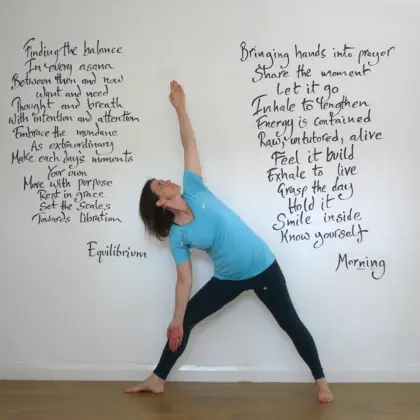 Finding the balance
In every asana
Between then and now
want and need
Thought and breath
with intention and attention
Embrace the mundane
As extraordinary
Make each day's moments
Your own
Move with purpose
Rest in grace
Set the Scales
Towards libration
Equilibrium
Bringing hands into prayer
Share the moment
Let it go
Inhale to lengthen
Energy is contained
Raw, untutored, alive
Feel it build
Exhale to live
Grasp the day
Hold it
Smile inside
Know yourself
Morning